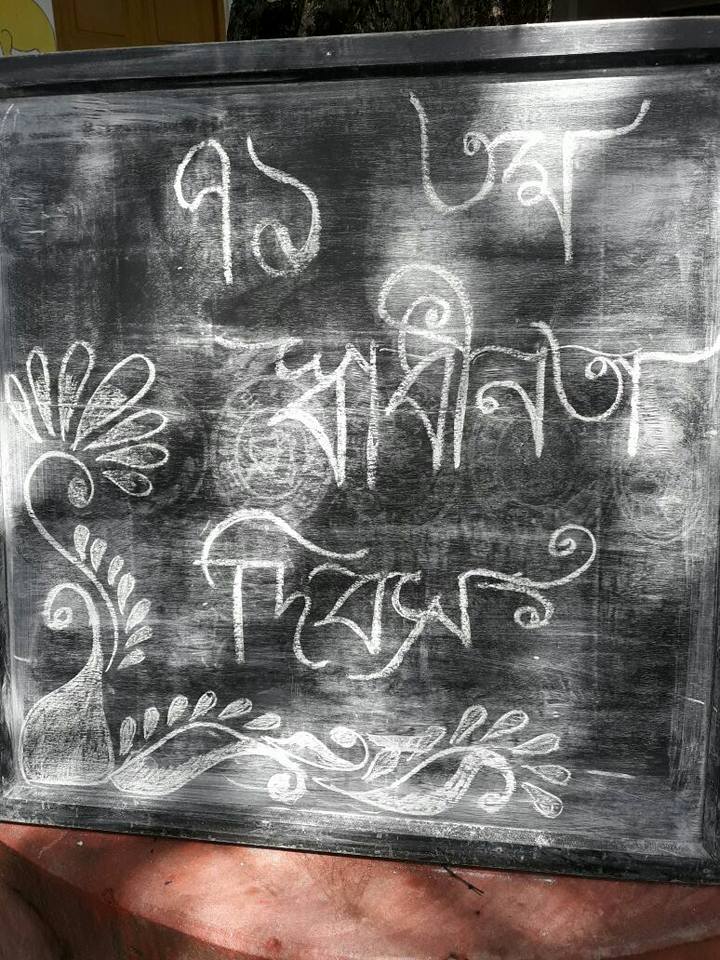 ৭১ তম
স্বাধীনতা
দিবস